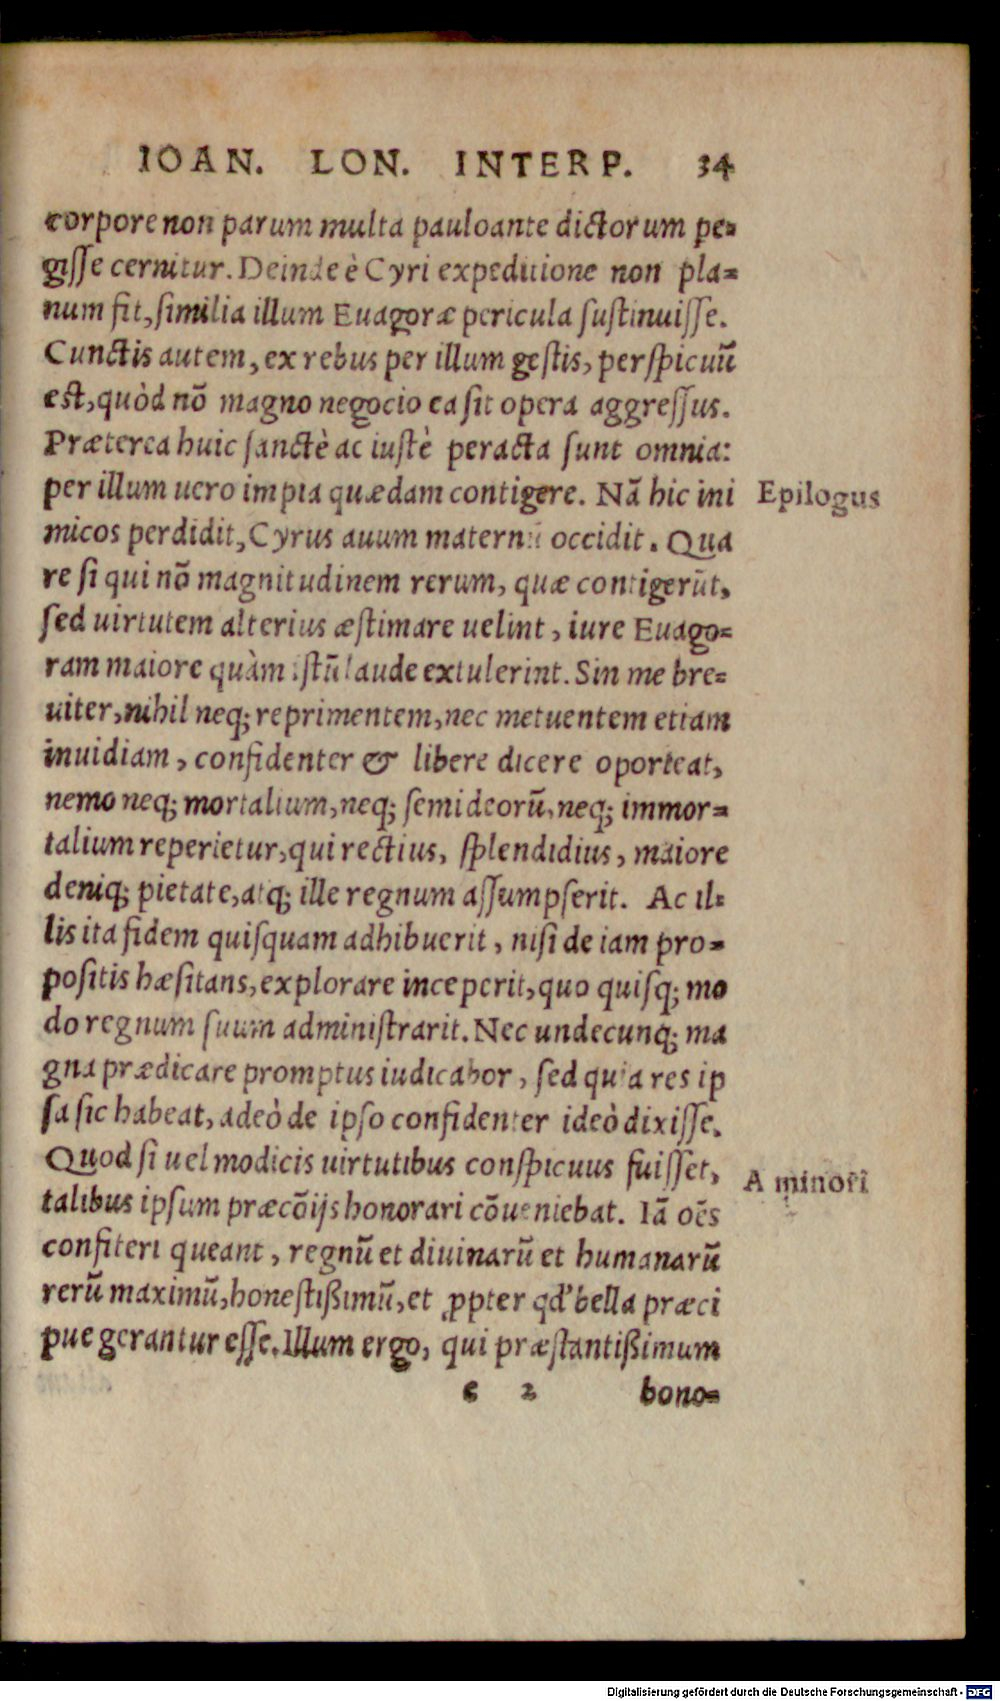 IOAN. LON. INTERP. 34
corpore non parum multa pauloante dictorum pe=
gisse cernitur. Deinde è Cyri expeditione non pla=
num fit, similia illum Euagoræ pericula sustinuisse.
Cunctis autem, ex rebus per illum gestis, perspicuū
est, quòd nō magno negocio ea sit opera aggressus.
Præterea huic sanctè ac iustè peracta sunt omnia:
per illum uero impia quædam contigere. Nā hic ini
Epilogus
micos perdidit, Cyrus auum maternū occidit. Qua
re si qui nō magnitudinem rerum, quæ contigerūt,
sed uirtutem alterius æstimare uelint, iure Euago=
ram maiore quàm istū laude extulerint. Sin me bre=
uiter, nihil neq; reprimentem, nec metuentem etiam
inuidiam, confidenter & libere dicere oporteat,
nemo neq; mortalium, neq; semideorū, neq; immor=
talium reperietur, qui rectius, splendidius, maiore
deniq; pietate, atq; ille regnum assumpserit. Ac il=
lis ita fidem quisquam adhibuerit, nisi de iam pro=
positis hæsitans, explorare inceperit, quo quisq; mo
do regnum suum administrarit. Nec undecunq; ma
gna prædicare promptus iudicabor, sed quia res ip
sa sic habeat, adeò de ipso confidenter ideò dixisse.
Quod si uel modicis uirtutibus conspicuus fuisset,
A minori
talibus ipsum præcōijs honorari cōueniebat. Iā oēs
confiteri queant, regnū et diuinarū et humanarū
rerū maximū, honestißimū, et ꝓpter qd' bella præci
pue gerantur esse. Illum ergo, qui præstantißimum
e 2 bono=
Digitalisierung gefördert durch die Deutsche Forschungsgemeinschaft - DFG